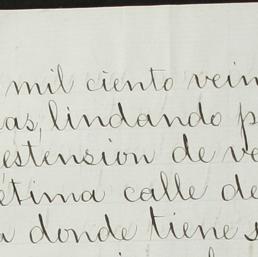 mil ciento vein
as, lindando p
estension de ve
étima calle de
a donde tiene s